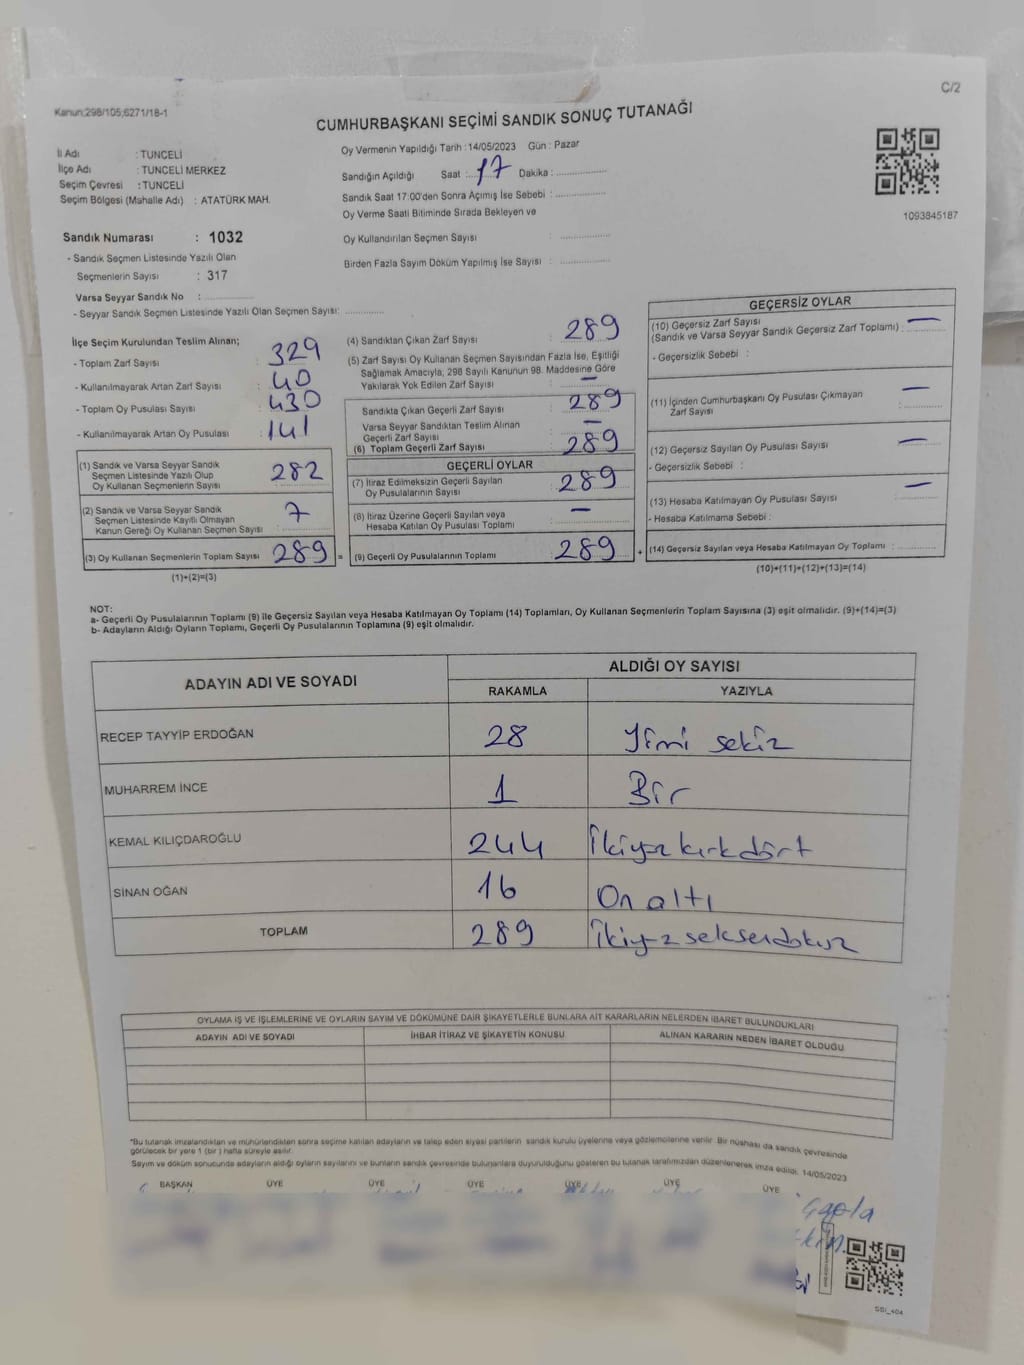 C/2
Kanun;298/105;6271/18-1
CUMHURBAŞKANI SEÇİMİ SANDIK SONUÇ TUTANAĞI
İl Adı : TUNCELİ
İlçe Adı : TUNCELİ MERKEZ
Seçim Çevresi : TUNCELİ
Seçim Bölgesi (Mahalle Adı) : ATATÜRK MAH.
Oy Vermenin Yapıldığı Tarih : 14/05/2023 Gün : Pazar
Sandığın Açıldığı Saat : 17 Dakika :
Sandık Saat 17:00'den Sonra Açımış İse Sebebi :
Oy Verme Saati Bitiminde Sırada Bekleyen ve
Oy Kullandırılan Seçmen Sayısı :
Birden Fazla Sayım Döküm Yapılmış İse Sayısı :
1093845187
Sandık Numarası : 1032
- Sandık Seçmen Listesinde Yazılı Olan
Seçmenlerin Sayısı : 317
Varsa Seyyar Sandık No :
- Seyyar Sandık Seçmen Listesinde Yazılı Olan Seçmen Sayısı:
İlçe Seçim Kurulundan Teslim Alınan;
- Toplam Zarf Sayısı : 329
- Kullanılmayarak Artan Zarf Sayısı : 40
- Toplam Oy Pusulası Sayısı : 430
- Kullanılmayarak Artan Oy Pusulası : 141
(1) Sandık ve Varsa Seyyar Sandık
Seçmen Listesinde Yazılı Olup
Oy Kullanan Seçmenlerin Sayısı 282
(2) Sandık ve Varsa Seyyar Sandık
Seçmen Listesinde Kayıtlı Olmayan
Kanun Gereği Oy Kullanan Seçmen Sayısı : 7
(3) Oy Kullanan Seçmenlerin Toplam Sayısı 289 =
(1)+(2)=(3)
(4) Sandıktan Çıkan Zarf Sayısı : 289
(5) Zarf Sayısı Oy Kullanan Seçmen Sayısından Fazla İse, Eşitliği
Sağlamak Amacıyla, 298 Sayılı Kanunun 98. Maddesine Göre
Yakılarak Yok Edilen Zarf Sayısı : —
Sandıkta Çıkan Geçerli Zarf Sayısı : 289
Varsa Seyyar Sandıktan Teslim Alınan
Geçerli Zarf Sayısı : —
(6) Toplam Geçerli Zarf Sayısı : 289
GEÇERLİ OYLAR
(7) İtiraz Edilmeksizin Geçerli Sayılan
Oy Pusulalarının Sayısı : 289
(8) İtiraz Üzerine Geçerli Sayılan veya
Hesaba Katılan Oy Pusulası Toplamı : —
(9) Geçerli Oy Pusulalarının Toplamı : 289 +
GEÇERSİZ OYLAR
(10) Geçersiz Zarf Sayısı
(Sandık ve Varsa Seyyar Sandık Geçersiz Zarf Toplamı) : —
- Geçersizlik Sebebi :
(11) İçinden Cumhurbaşkanı Oy Pusulası Çıkmayan
Zarf Sayısı : —
(12) Geçersiz Sayılan Oy Pusulası Sayısı : —
- Geçersizlik Sebebi :
(13) Hesaba Katılmayan Oy Pusulası Sayısı : —
- Hesaba Katılmama Sebebi :
(14) Geçersiz Sayılan veya Hesaba Katılmayan Oy Toplamı :
(10)+(11)+(12)+(13)=(14)
NOT:
a- Geçerli Oy Pusulalarının Toplamı (9) ile Geçersiz Sayılan veya Hesaba Katılmayan Oy Toplamı (14) Toplamları, Oy Kullanan Seçmenlerin Toplam Sayısına (3) eşit olmalıdır. (9)+(14)=(3)
b- Adayların Aldığı Oyların Toplamı, Geçerli Oy Pusulalarının Toplamına (9) eşit olmalıdır.
ADAYIN ADI VE SOYADI ALDIĞI OY SAYISI
RAKAMLA YAZIYLA
RECEP TAYYİP ERDOĞAN 28 Yirmi sekiz
MUHARREM İNCE 1 Bir
KEMAL KILIÇDAROĞLU 244 İkiyüz kırk dört
SİNAN OĞAN 16 On altı
TOPLAM 289 İkiyüz seksendokuz
OYLAMA İŞ VE İŞLEMLERİNE VE OYLARIN SAYIM VE DÖKÜMÜNE DAİR ŞİKAYETLERLE BUNLARA AİT KARARLARIN NELERDEN İBARET BULUNDUKLARI
ADAYIN ADI VE SOYADI İHBAR İTİRAZ VE ŞİKAYETİN KONUSU ALINAN KARARIN NEDEN İBARET OLDUĞU
*Bu tutanak imzalandıktan ve mühürlendikten sonra seçime katılan adayların ve talep eden siyasi partilerin sandık kurulu üyelerine veya gözlemcilerine verilir. Bir nüshası da sandık çevresinde
görülecek bir yere 1 (bir) hafta süreyle asılır.
Sayım ve döküm sonucunda adayların aldığı oyların sayılarını ve bunların sandık çevresinde bulunanlara duyurulduğunu gösteren bu tutanak tarafımızdan düzenlenerek imza edildi. 14/05/2023
BAŞKAN ÜYE ÜYE ÜYE ÜYE ÜYE ÜYE